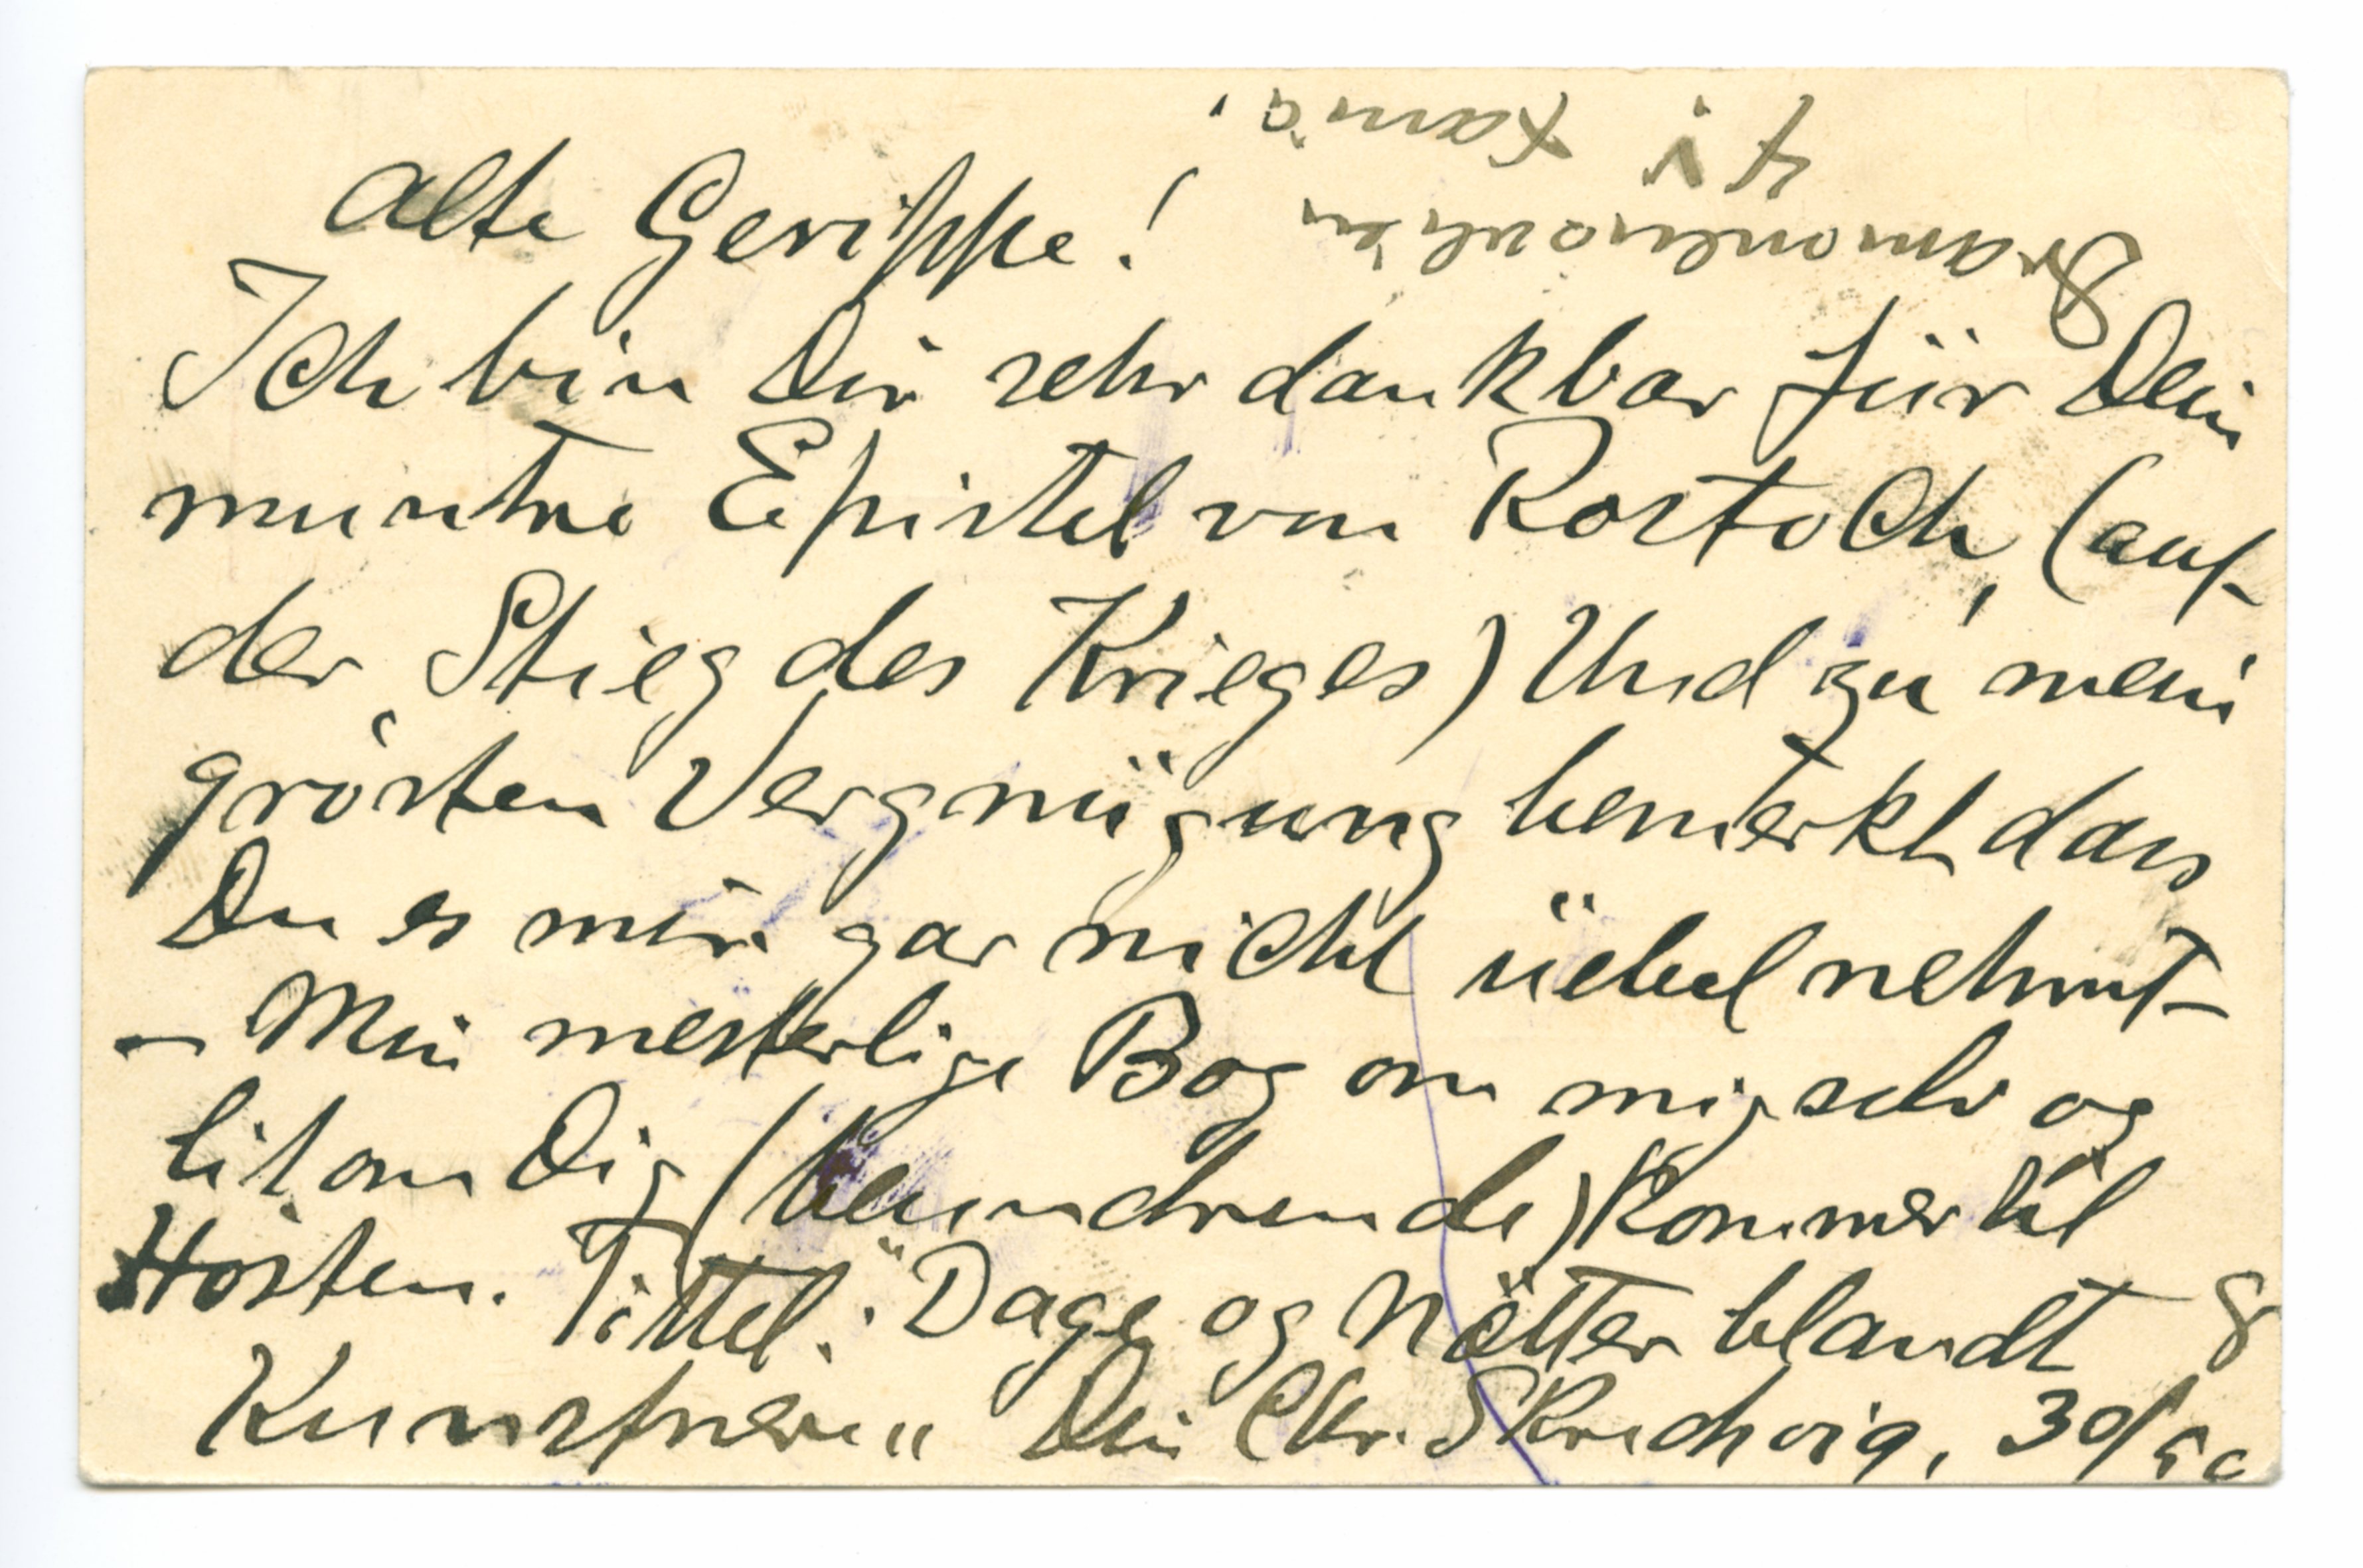 Alte Gerippe!
Ich bin Dir sehr dankbar für Dein
muntre Epistel von Rostock, (auf
der Stieg des Krieges) Und zu mein
grösten Vergnügung bemerkt dass
Du es mir gar nicht üebel nehmt
– Min mesterlige Bog om mig selv og
lit om Dig (beundrende) Kommer til
Hösten. Tittel: "Dage og Nætter blandt
Kunstnere" Din Chr. Skredsvig, 30/
Dramoneuselven
f. i Xania.